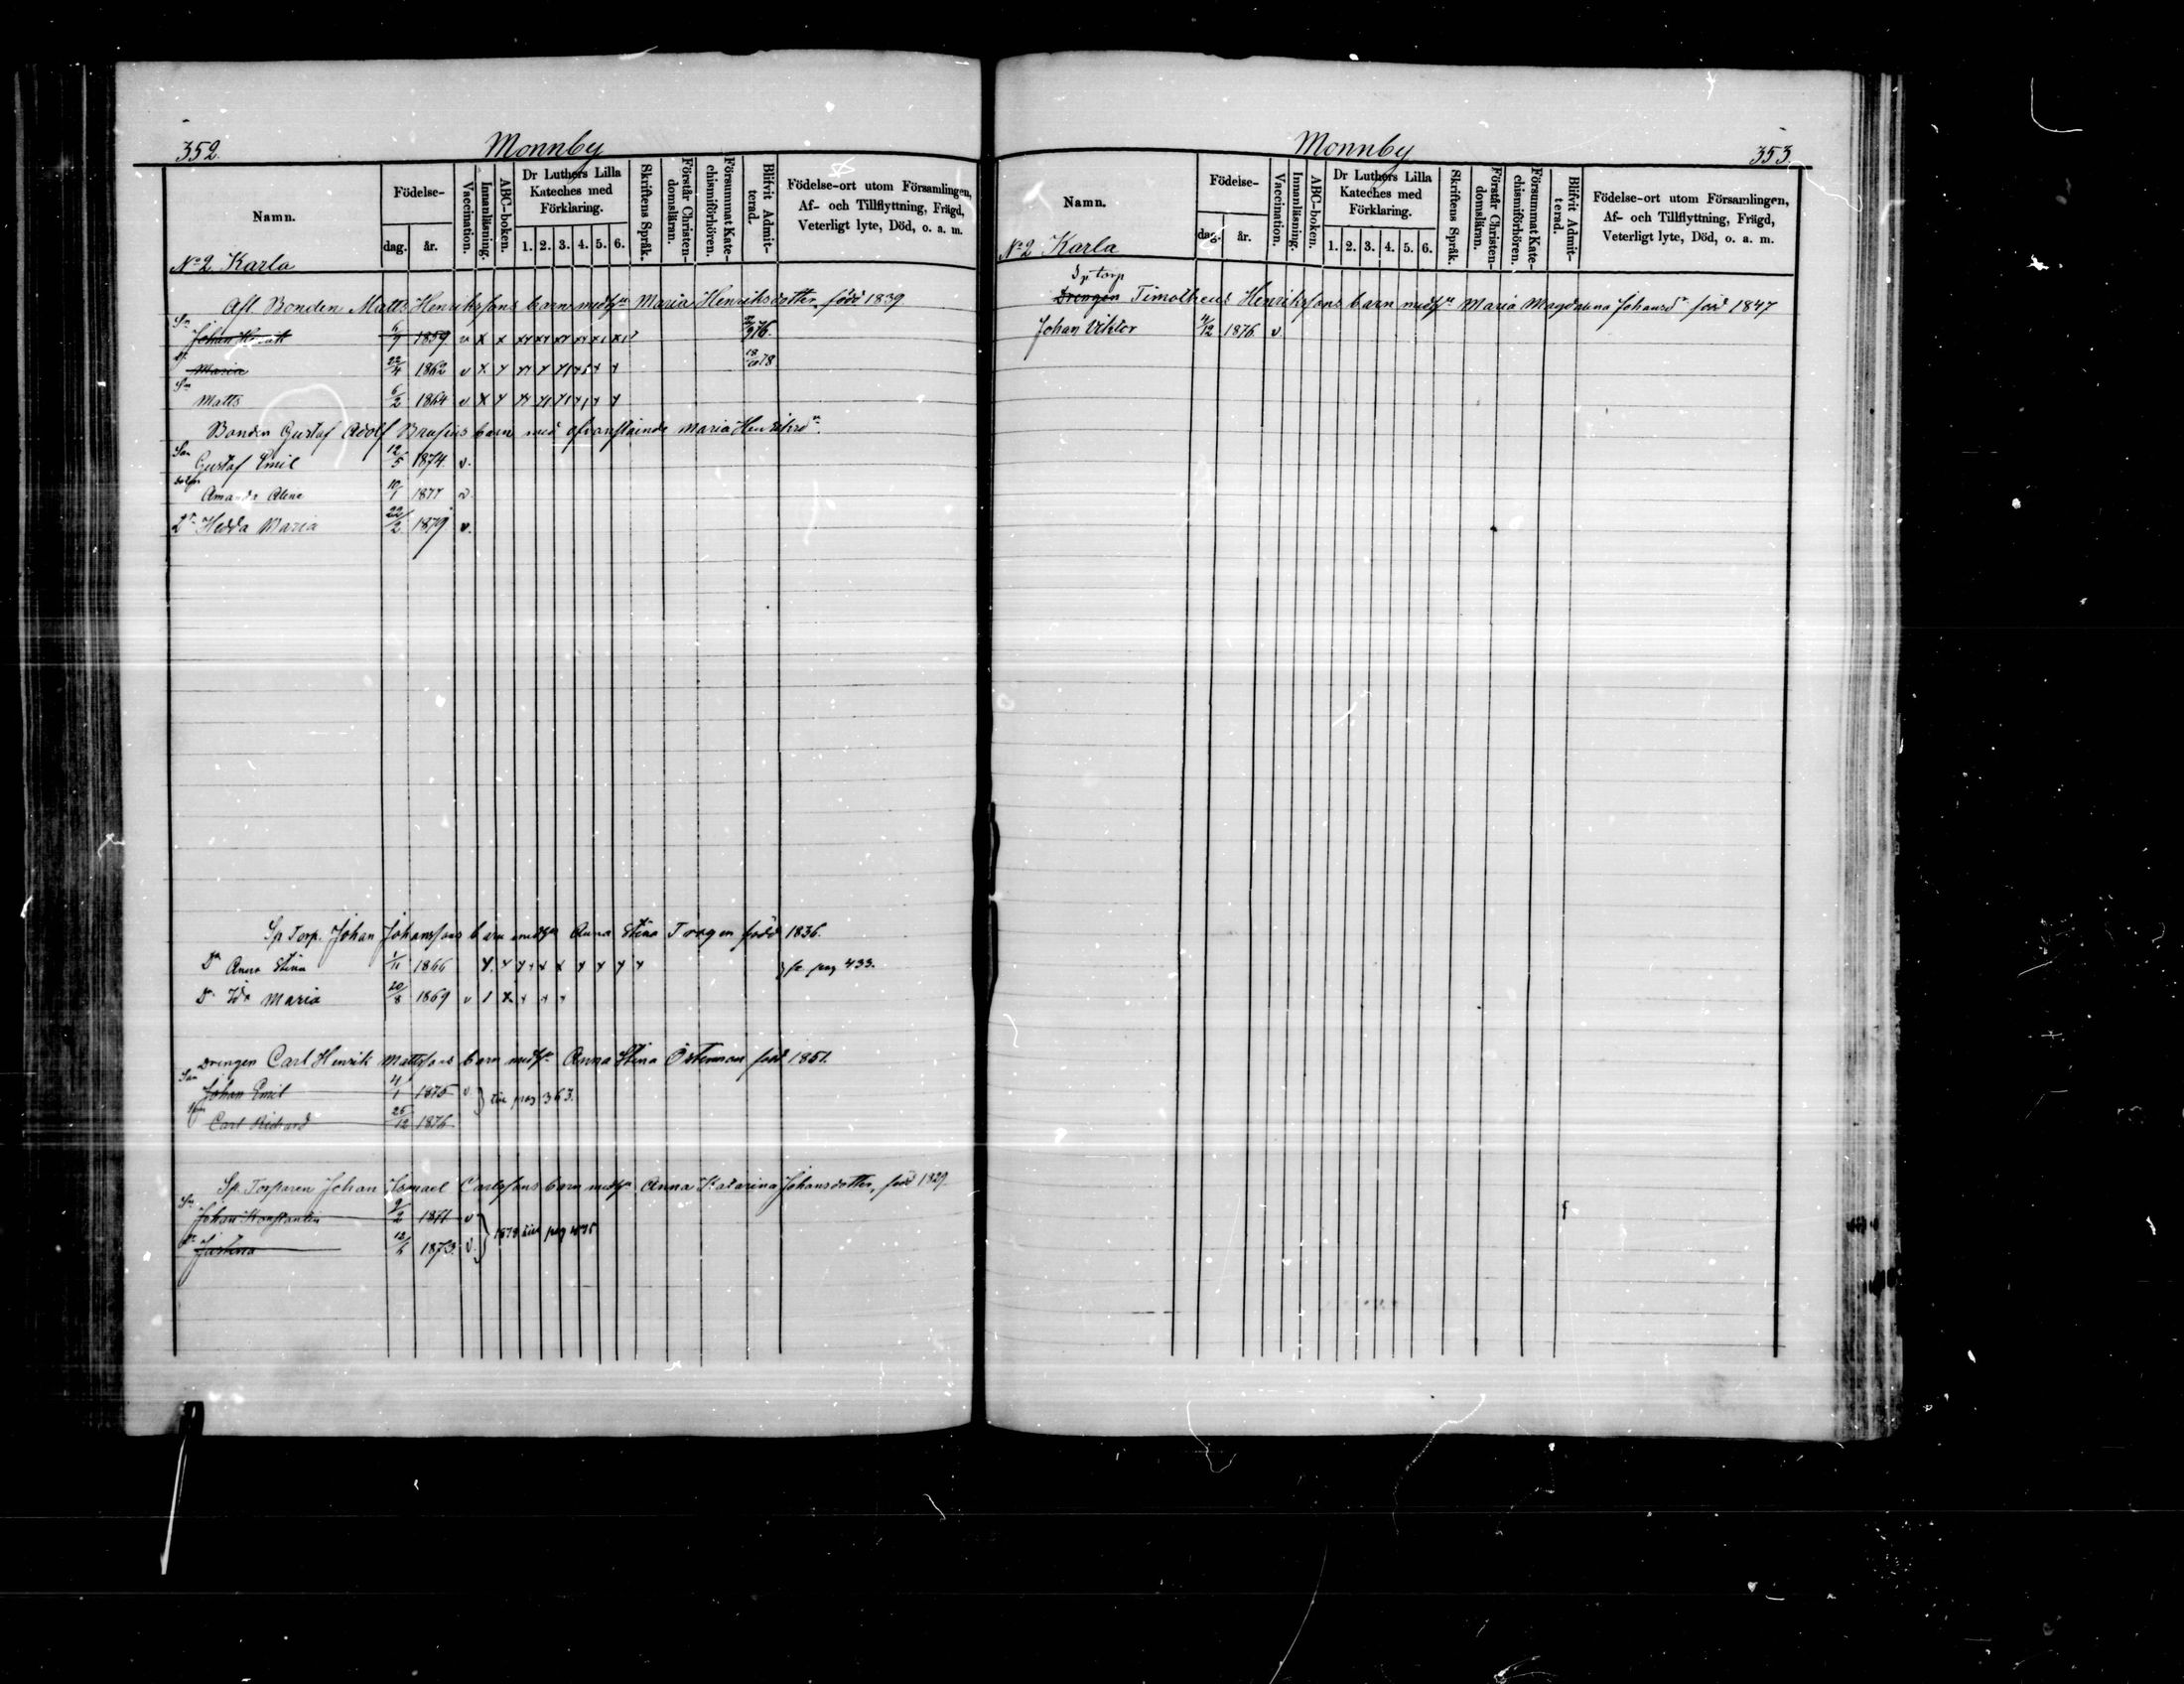 352.
Monnby
Namn.
Födelse-
dag.
år.
Vaccination.
Innanläsning.
ABC-boken.
Dr Luthers Lilla Kateches med Förklaring.
1. 2. 3. 4. 5. 6.
Skriftens Språk.
Förstår Christendomsläran.
Försummat Katechismiförhören.
Blifvit Admitterad.
Födelse-ort utom Församlingen,
Af- och Tillflyttning, Frägd,
Veterligt lyte, Död, o. a. m.
No 2 Karla
Afl. Bonden Matts Henrikssons barn med hu Maria Henriksdotter född 1839
Sn Johan 1859 v x x
Dr Maria 22/4 1862 v x x 78
Sn Matts 6/2 1864 v x x
Bonden Gustaf Adolf Brusiins barn med ofvanstående Maria Henriksdr
Son Gustaf Emil 12/5 1874. v.
Amanda Alina 10/1 1877 v.
Dr Hedda Maria 22/2 1879 v.
Sp Torp. Johan Johanssons barn med hu Anna Stina född 1836.
Dr Anna Stina 1/11 1866 } se pag 433.
Dr Ida Maria 20/8 1869 v
Drengen Carl Henrik Mattssons barn med hu Anna Stina Österman född 1851.
Son Johan Emil 4/1 1875 v } till pag 363.
Son Carl Richard 25/12 1876
Sp. Torparen Johan Samuel Carlssons barn med hu Anna Katarina Johansdotter, född 1829
Sn Johan Konstantin 9/2 1871 v } 1879 till pag
Dr Justina 12/6 1873 v.
Monnby
353.
Namn.
Födelse-
dag.
år.
Vaccination.
Innanläsning.
ABC-boken.
Dr Luthers Lilla Kateches med Förklaring.
1. 2. 3. 4. 5. 6.
Skriftens Språk.
Förstår Christendomsläran.
Försummat Katechismiförhören.
Blifvit Admitterad.
Födelse-ort utom Församlingen,
Af- och Tillflyttning, Frägd,
Veterligt lyte, Död, o. a. m.
No 2 Karla
Sp torp
Drengen Timotheus Henrikssons barn med hu Maria Magdalena Johansdr född 1847
Johan Viktor 4/12 1876 v